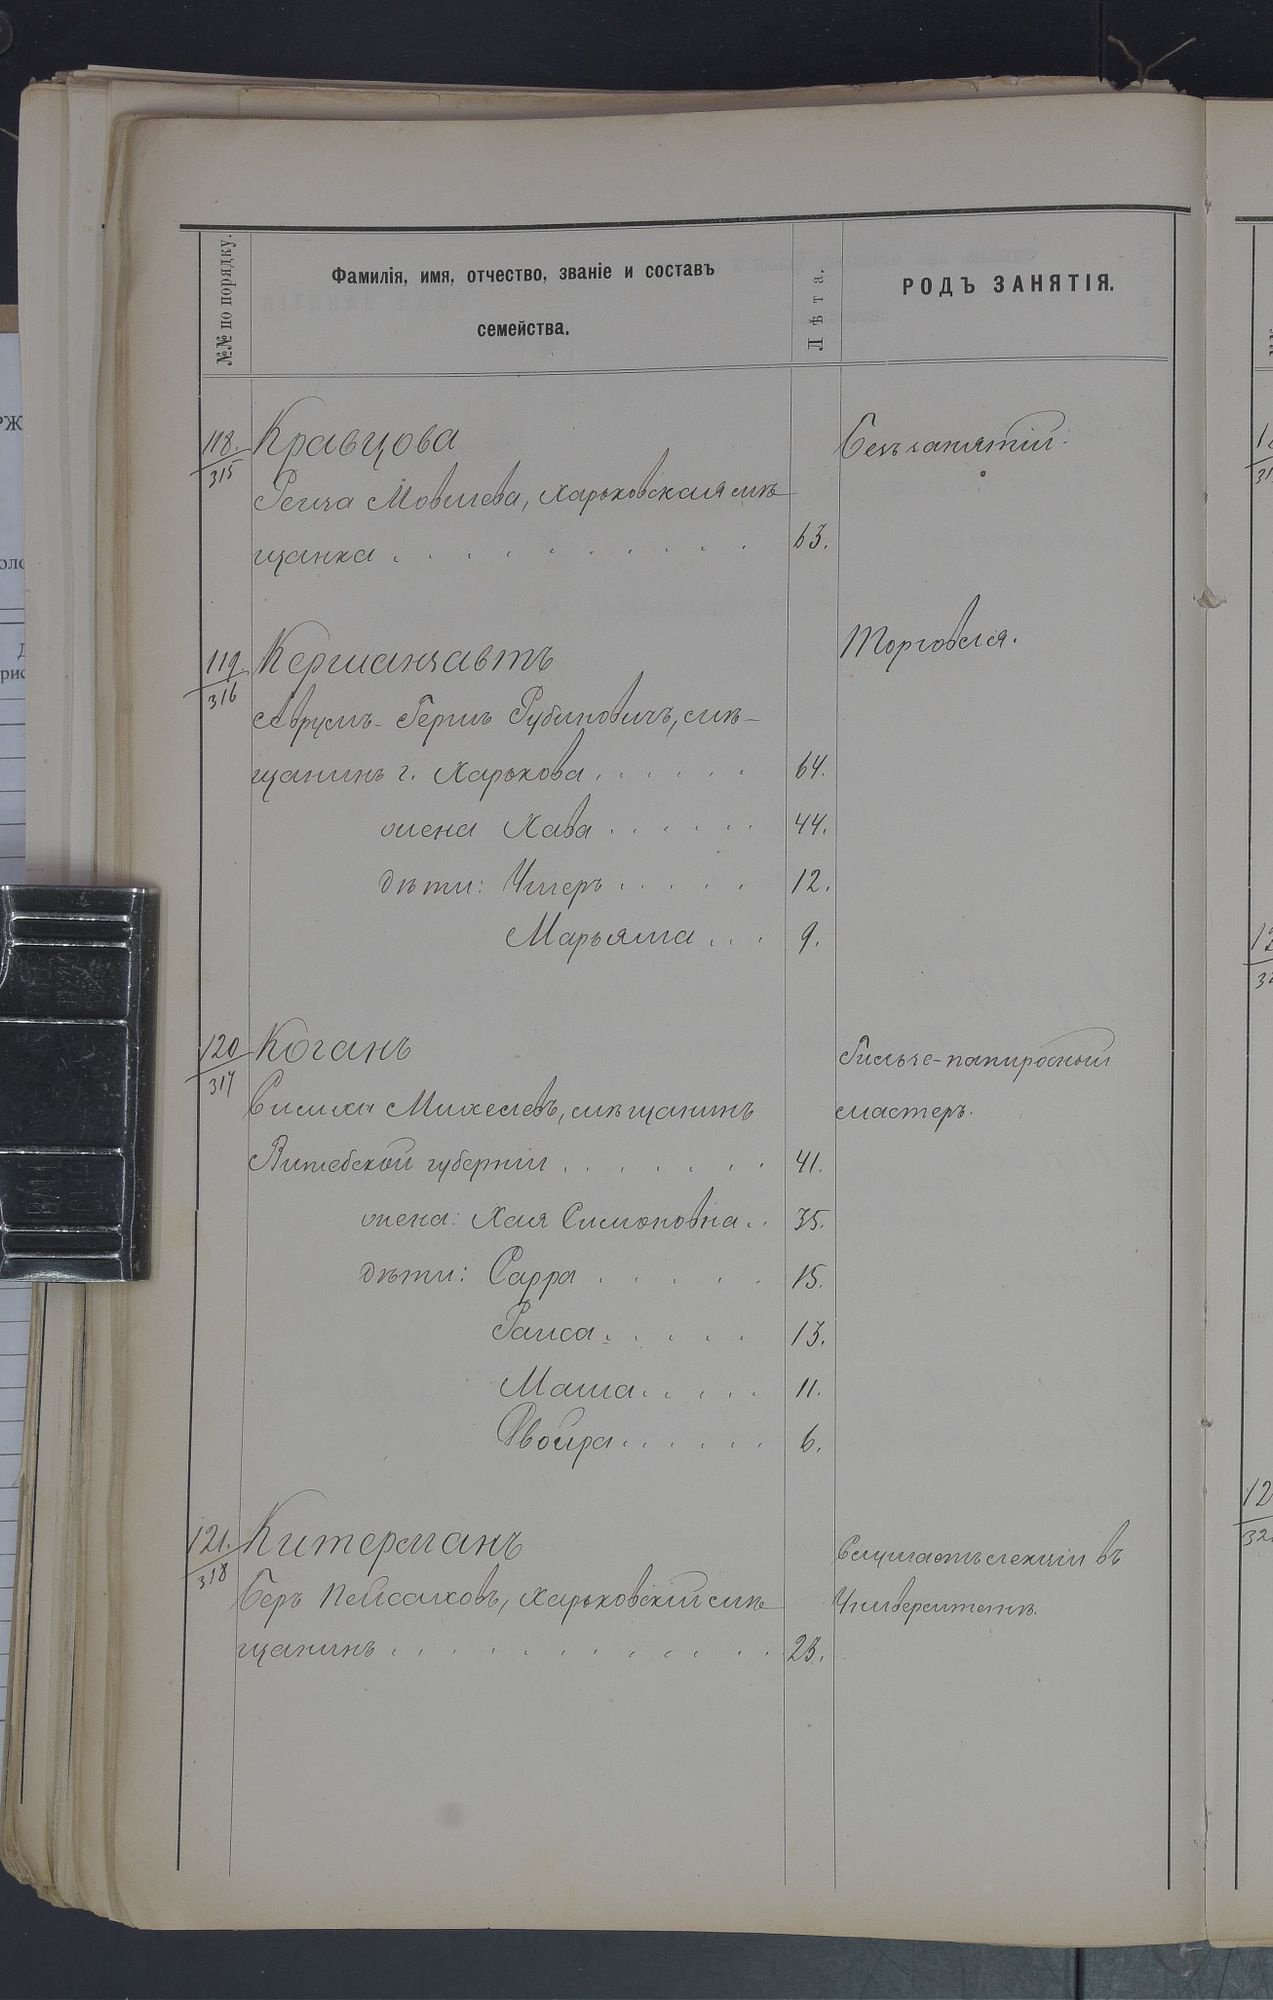 №№ по порядку.
Фамилія, имя, отчество, званіе и составъ
семейства.
Лѣта.
РОДЪ ЗАНЯТІЯ.
118.
315
Кравцова
Безъ занятій.
Мовшева, Харьковская мѣ-
щанка . . . . . . . . . . 63.
119
316
Керманзавтъ
Торговля.
Аврумъ-Гершъ Рубиновичъ, мѣ-
щанинъ г. Харькова . . . . . . 64.
жена Хава . . . . . . 44.
дѣти: . . . . . 12.
Марьяма . . . 9.
120
317
Коганъ
Гильзе-папиросный
Михелевъ, мѣщанинъ
мастеръ.
Витебской губерніи . . . . . . . 41.
жена: Хая Симоновна . . 35.
дѣти: Сарра . . . . . 15.
Раиса . . . . . 13.
Маша . . . . . 11.
Двойра . . . . . . 6.
121.
318
Китерманъ
Слушаетъ лекціи въ
Беръ Пейсаховъ, Харьковскій мѣ-
Университетѣ.
щанинъ . . . . . . . . . . . . 23.